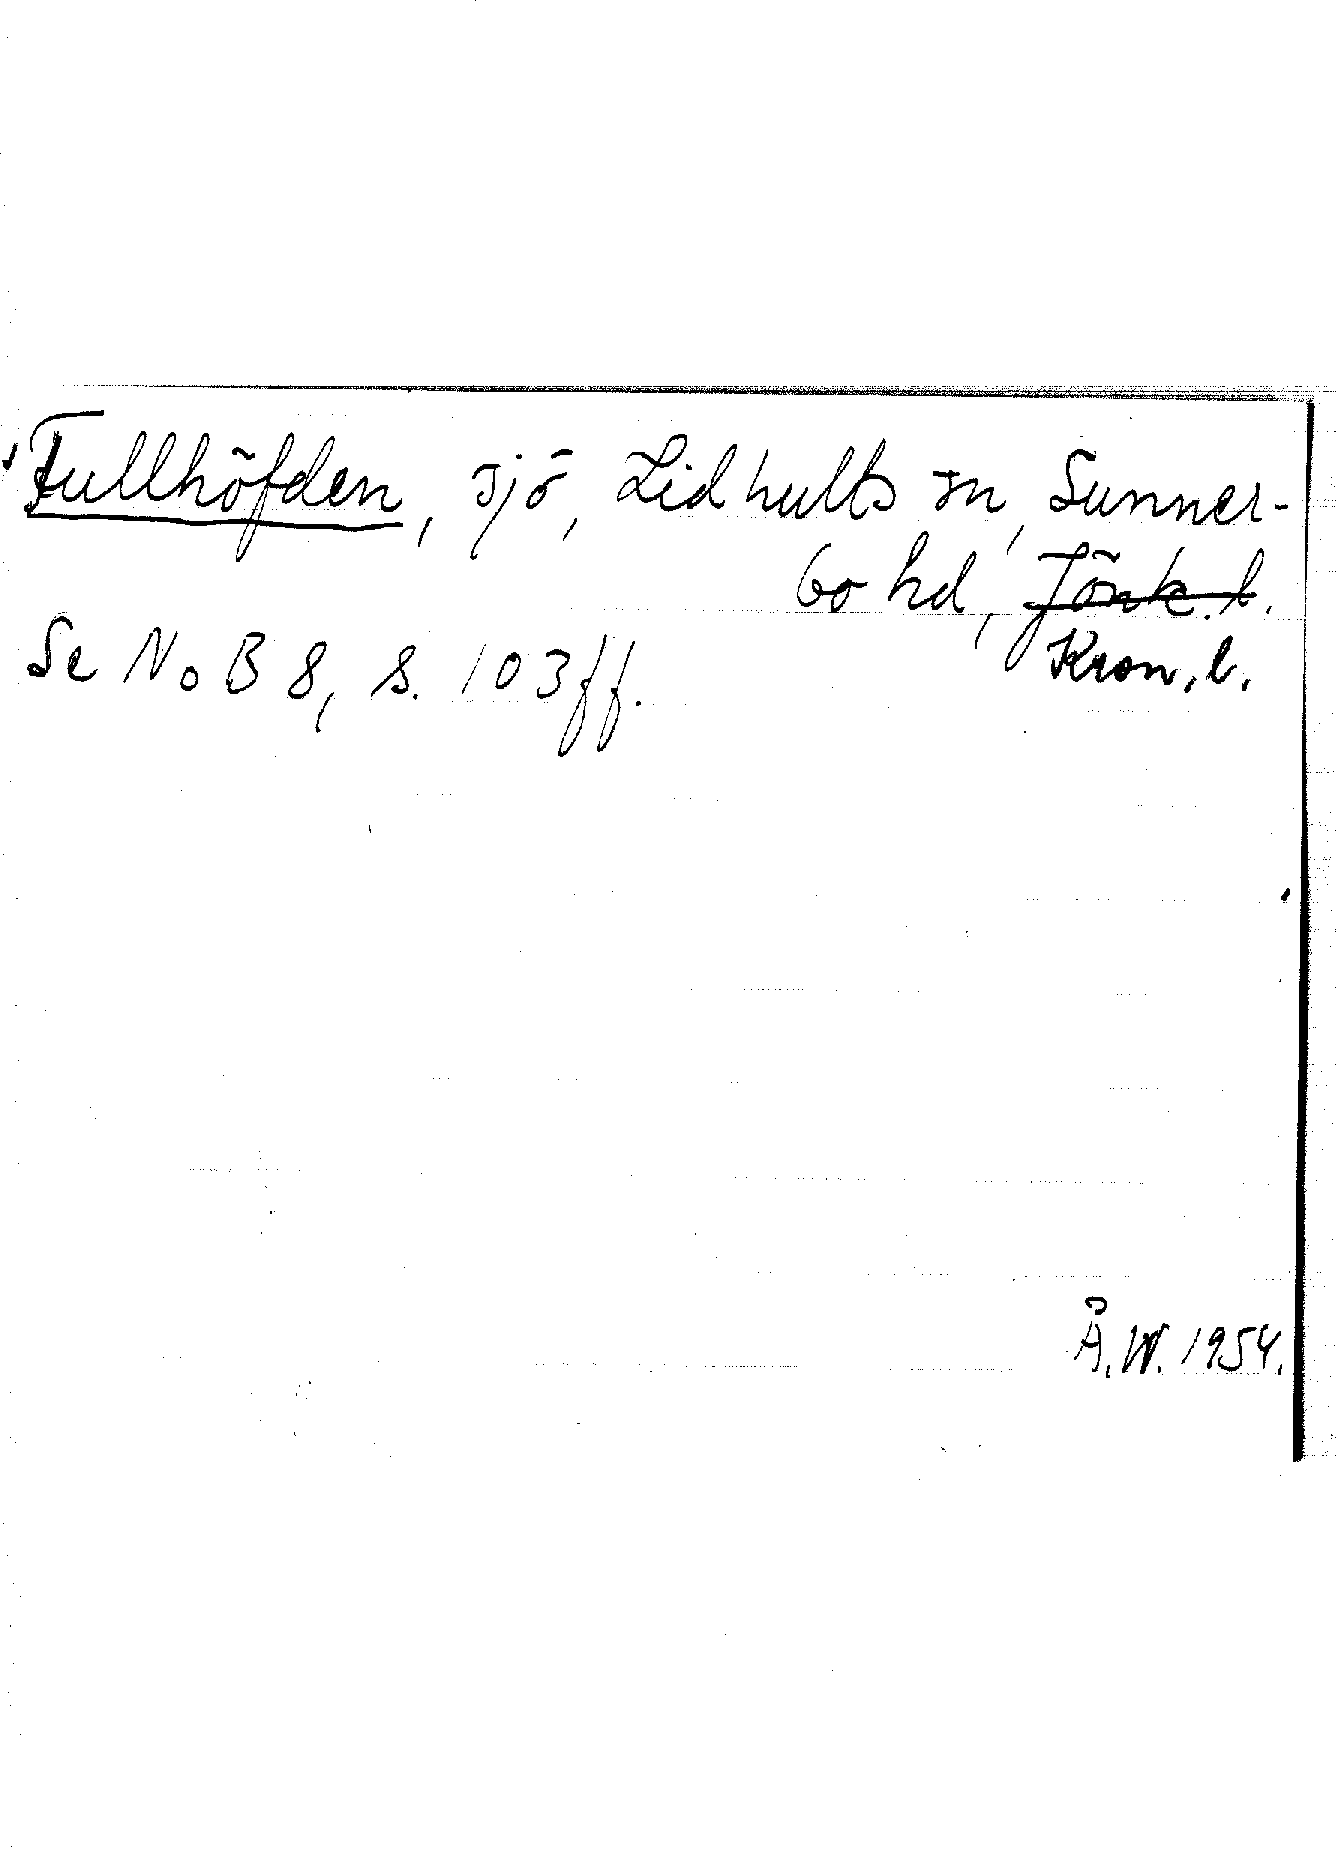 Fullhöfden, sjö, Lidhults sn, Sunner-
bo hd, Jönk. l.
Kron. l.
Se NoB 8, s. 103 ff.
Å. W. 1954.